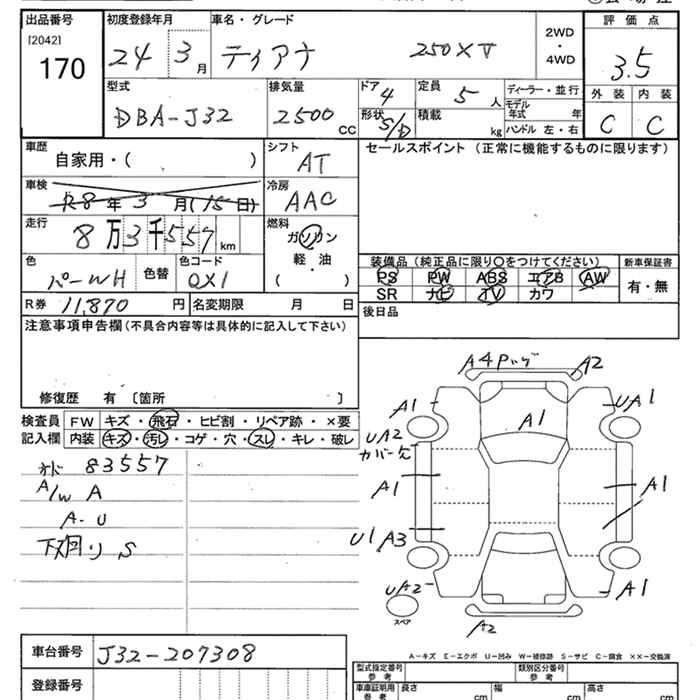 出品番号 初度登録年月 車名・グレード 評価点
[2042]
170 24 3月 ティアナ 250XV 2WD・4WD 3.5
型式 排気量 ドア 4 定員 5人 ディーラー・並行 外装 内装
DBA-J32 2500 CC 形状 S/D 積載 kg モデル年式 年 C C
ハンドル 左・右
車歴 自家用・( ) シフト AT セールスポイント (正常に機能するものに限ります)
車検 R8年3月(15日) 冷房 AAC
走行 8万3千557km 燃料 ガソリン
軽・油
( )
色 パールWH 色替 色コード QX1 装備品 (純正品に限り○をつけてください) 新車保証書
PS PW ABS エアB AW 有・無
SR ナビ TV カワ
R券 11,870円 名変期限 月 日 後日品
注意事項申告欄 (不具合内容等は具体的に記入して下さい)
修復歴 有 〔箇所 〕
検査員 FW キズ・飛石・ヒビ割・リペア跡・×要
記入欄 内装 キズ・汚レ・コゲ・穴・スレ・キレ・破レ
83557
A/W A
A-U
下廻り S
A4 A2
A1 UA1
A1
UA2
カバー欠
A1 A1
U1 A3
UA2 A1
スペア
A2
A-キズ E-エクボ U-凹み W-補修跡 S-サビ C-腐食 ××-交換済
車台番号 J32-207308
登録番号
型式指定番号 参考 類別区分番号 参考
車庫証明用 参考 長さ cm 幅 cm 高さ cm